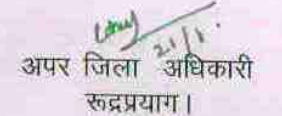 21/1.
अपर जिला अधिकारी
रूद्रप्रयाग।